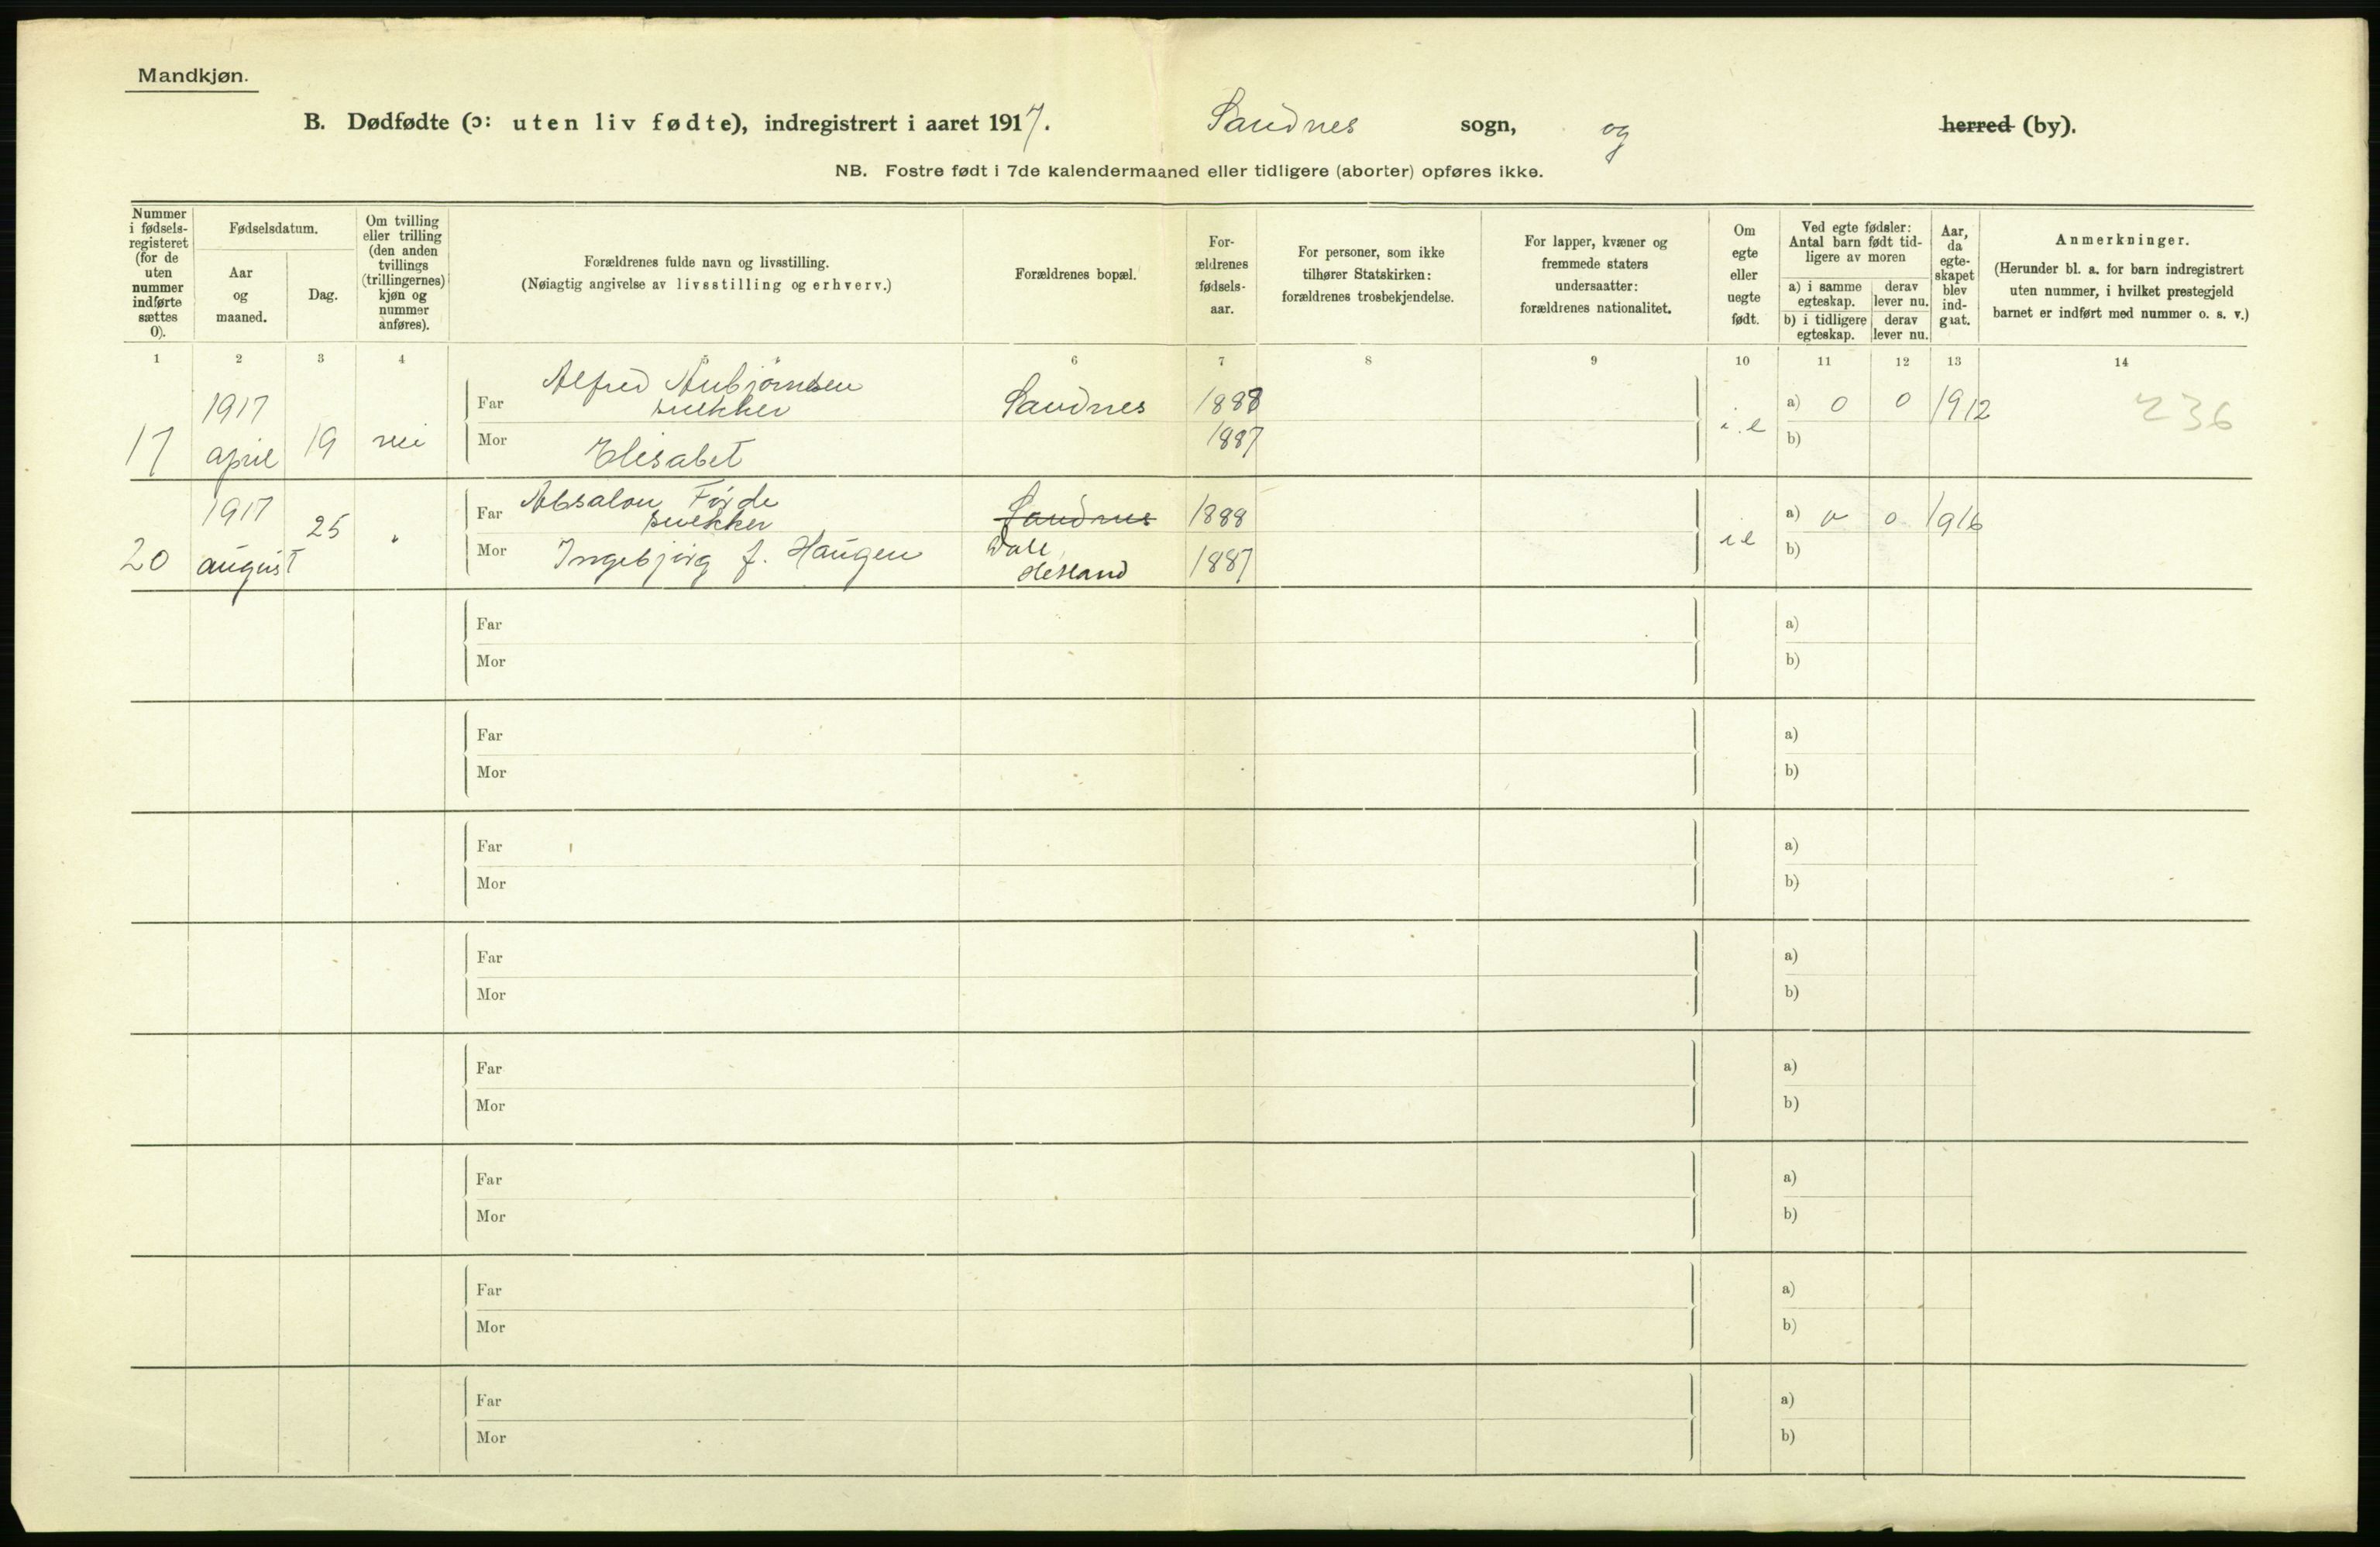 Mandkjøn.
B. Dødfødte (ɔ: uten liv fødte), indregistrert i aaret 1917. Sandnes sogn, og herred (by).
NB. Fostre født i 7de kalendermaaned eller tidligere (aborter) opføres ikke.
Nummer i fødsels-registeret (for de uten nummer indførte sættes 0).
Fødselsdatum.
Aar og maaned.
Dag.
Om tvilling eller trilling (den anden tvillings (trillingernes) kjøn og nummer anføres).
Forældrenes fulde navn og livsstilling.
(Nøiagtig angivelse av livsstilling og erhverv.)
Forældrenes bopæl.
For-ældrenes fødsels-aar.
For personer, som ikke tilhører Statskirken: forældrenes trosbekjendelse.
For lapper, kvæner og fremmede staters undersaatter: forældrenes nationalitet.
Om egte eller uegte født.
Ved egte fødsler: Antal barn født tid-ligere av moren
a) i samme egteskap.
derav lever nu.
b) i tidligere egteskap.
derav lever nu.
Aar, da egte-skapet blev ind-gaat.
Anmerkninger.
(Herunder bl. a. for barn indregistrert uten nummer, i hvilket prestegjeld barnet er indført med nummer o. s. v.)
1 2 3 4 5 6 7 8 9 10 11 12 13 14
17 1917 april 19 nei Far Alfred Aubjørnsen snekker Sandnes 1888 i.e a) 0 0 1912 236
Mor Elisabet 1887 b)
20 1917 august 25 " Far AbsalonFørde snekker Sandnes 1888 i e a) 0 0 1916
Mor Ingebjørg f. Haugen Dale Hetland 1887 b)
Far a)
Mor b)
Far a)
Mor b)
Far a)
Mor b)
Far a)
Mor b)
Far a)
Mor b)
Far a)
Mor b)
Far a)
Mor b)
Far a)
Mor b)